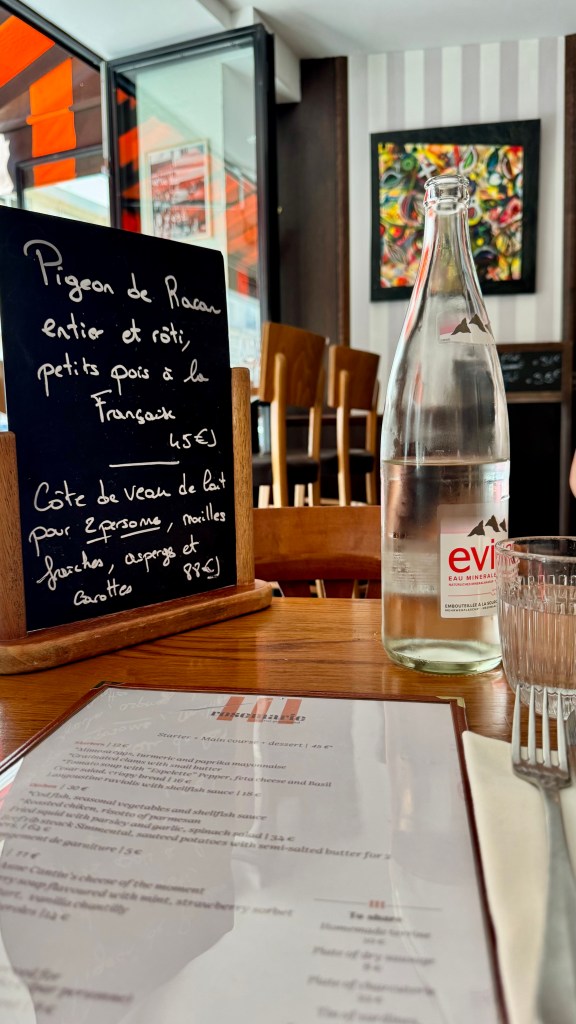 Pigeon de Racan
entier et rôti,
petits pois à la
Française
45€
Côte de veau de lait
pour 2 personnes, morilles
fraîches, asperges et
carottes 89€
evi
EAU MINERALE
rosemarie
Starter + Main course + dessert | 42 €
turmeric and paprika mayonnaise
with snail butter
"Tomato soup with "Espelette" Pepper, feta cheese and Basil
Cesar salad, crispy bread | 16 €
Langoustine raviolis with shellfish sauce | 18 €
"Cod fish, seasonal vegetables and shellfish sauce
"Roasted chiken, risotto of parmesan
Fried squid with parsley and garlic, spinach salad | 34 €
rib steack Simmental, sauteed potatoes with semi-salted butter for 2
| 64 €
ment de garniture | 5 €
cheese of the moment
soup flavoured with mint, strawberry sorbet
vanilla chantilly
To share
Homemade terrine
Plate of dry sausage
9 €
Plate of charcuterie